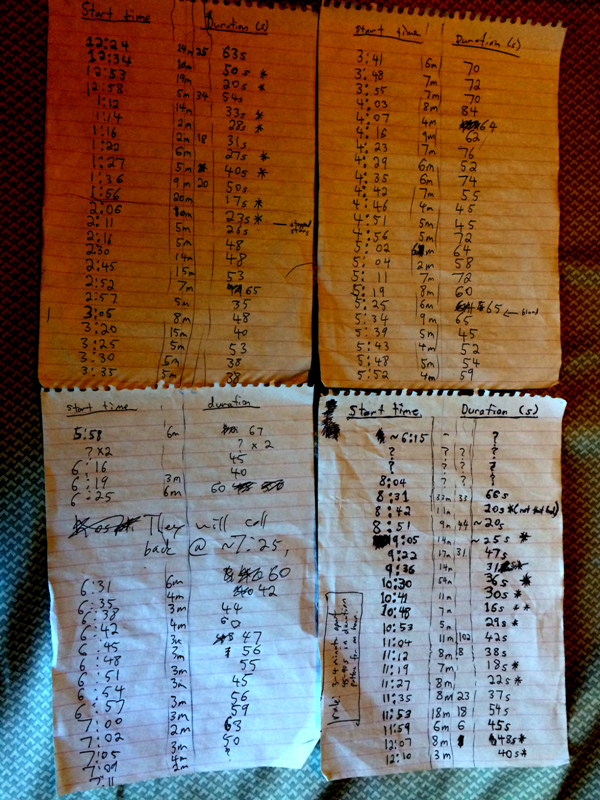 Start time Duration (s)
12:24 14m 25 63s
12:34 10m 50s *
12:53 19m 20s *
12:58 5m 34 54s
1:12 14m 33s *
1:14 2m 28s *
1:16 2m 18 31s
1:22 6m 27s *
1:27 5m 40s *
1:36 9m 20 50s
1:56 20m 17s *
2:06 10m 23s *
2:11 5m 26s
2:16 5m 48
2:30 14m 48
2:45 15m 53
2:52 7m 65
2:57 5m 35
3:05 8m 48
3:20 15m 40
3:25 5m 53
3:30 5m 38
3:35 5m 38
Start time Duration (s)
3:41 6m 70
3:48 7m 72
3:55 7m 70
4:03 8m 84
4:07 4m 64
4:16 9m 62
4:23 7m 76
4:29 6m 52
4:35 6m 74
4:42 7m 55
4:46 4m 45
4:51 5m 45
4:56 5m 72
5:02 6m 64
5:04 2m 58
5:11 7m 72
5:19 8m 60
5:25 6m 65 ← blood
5:34 9m 65
5:39 5m 45
5:43 4m 52
5:48 5m 54
5:52 4m 59
start time duration
5:58 6m 67
? x2 ? x 2
6:16 45
6:19 3m 40
6:25 6m 60
They will call
back @ ~7:25,
6:31 6m 60
6:35 4m 42
6:38 3m 44
6:42 4m 60
6:45 3m 47
6:48 3m 56
6:51 3m 55
6:54 3m 45
6:57 3m 56
7:00 3m 59
7:02 2m 63
7:05 3m 50
7:09 4m ?
7:11 2m
Start time Duration (s)
~6:15 ~ ?
? ? ? ?
? ? ? ?
8:04 ? ? ?
8:31 33 66s
8:42 11m 20s * (not that bad)
8:51 9m 44 ~20s
9:05 14m ~25s *
9:22 17m 31 47s
9:36 14m 31
10:30 54m 36s *
10:41 11m 30s *
10:48 7m 16s **
10:53 5m 29s *
11:04 11m 102 42s
11:12 8m 18 38s
11:19 7m 18s *
11:27 8m 22s *
11:35 8m 23 37s
11:53 18m 18 54s
11:59 6m 6 45s
12:07 8m 48s *
12:10 3m 40s *